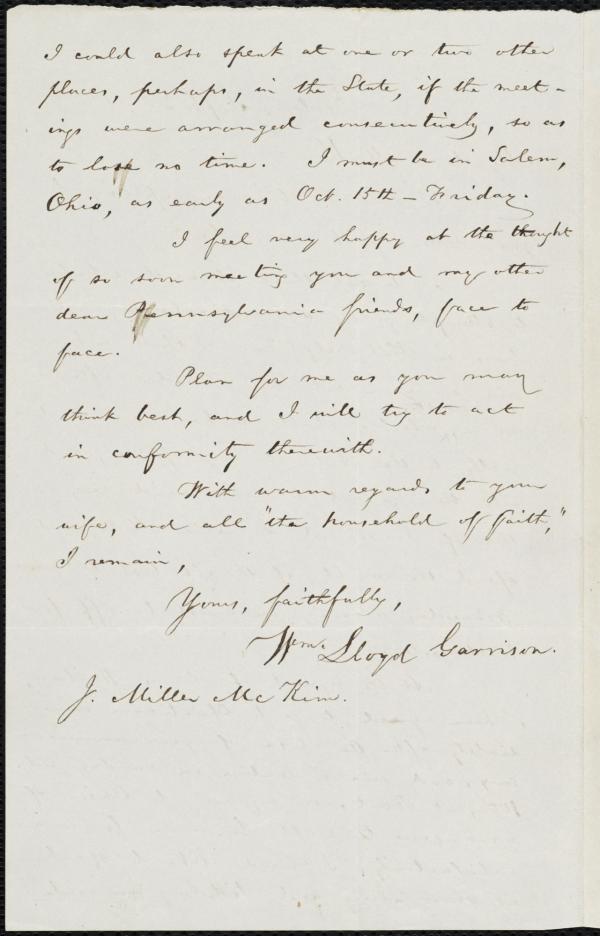 I could also speak at one or two other
places, perhaps, in the State, if the meet-
ings were arranged consecutively, so as
to lose no time. I must be in Salem,
Ohio, as early as Oct. 15th - Friday.
I feel very happy at the thought
of so soon meeting you and my other
dear Pennsylvania friends, face to
face.
Plan for me as you may
think best, and I will try to act
in conformity therewith.
With warm regards to your
wife, and all "the household of faith,"
I remain,
Yours, faithfully,
Wm. Lloyd Garrison.
J. Miller McKim.